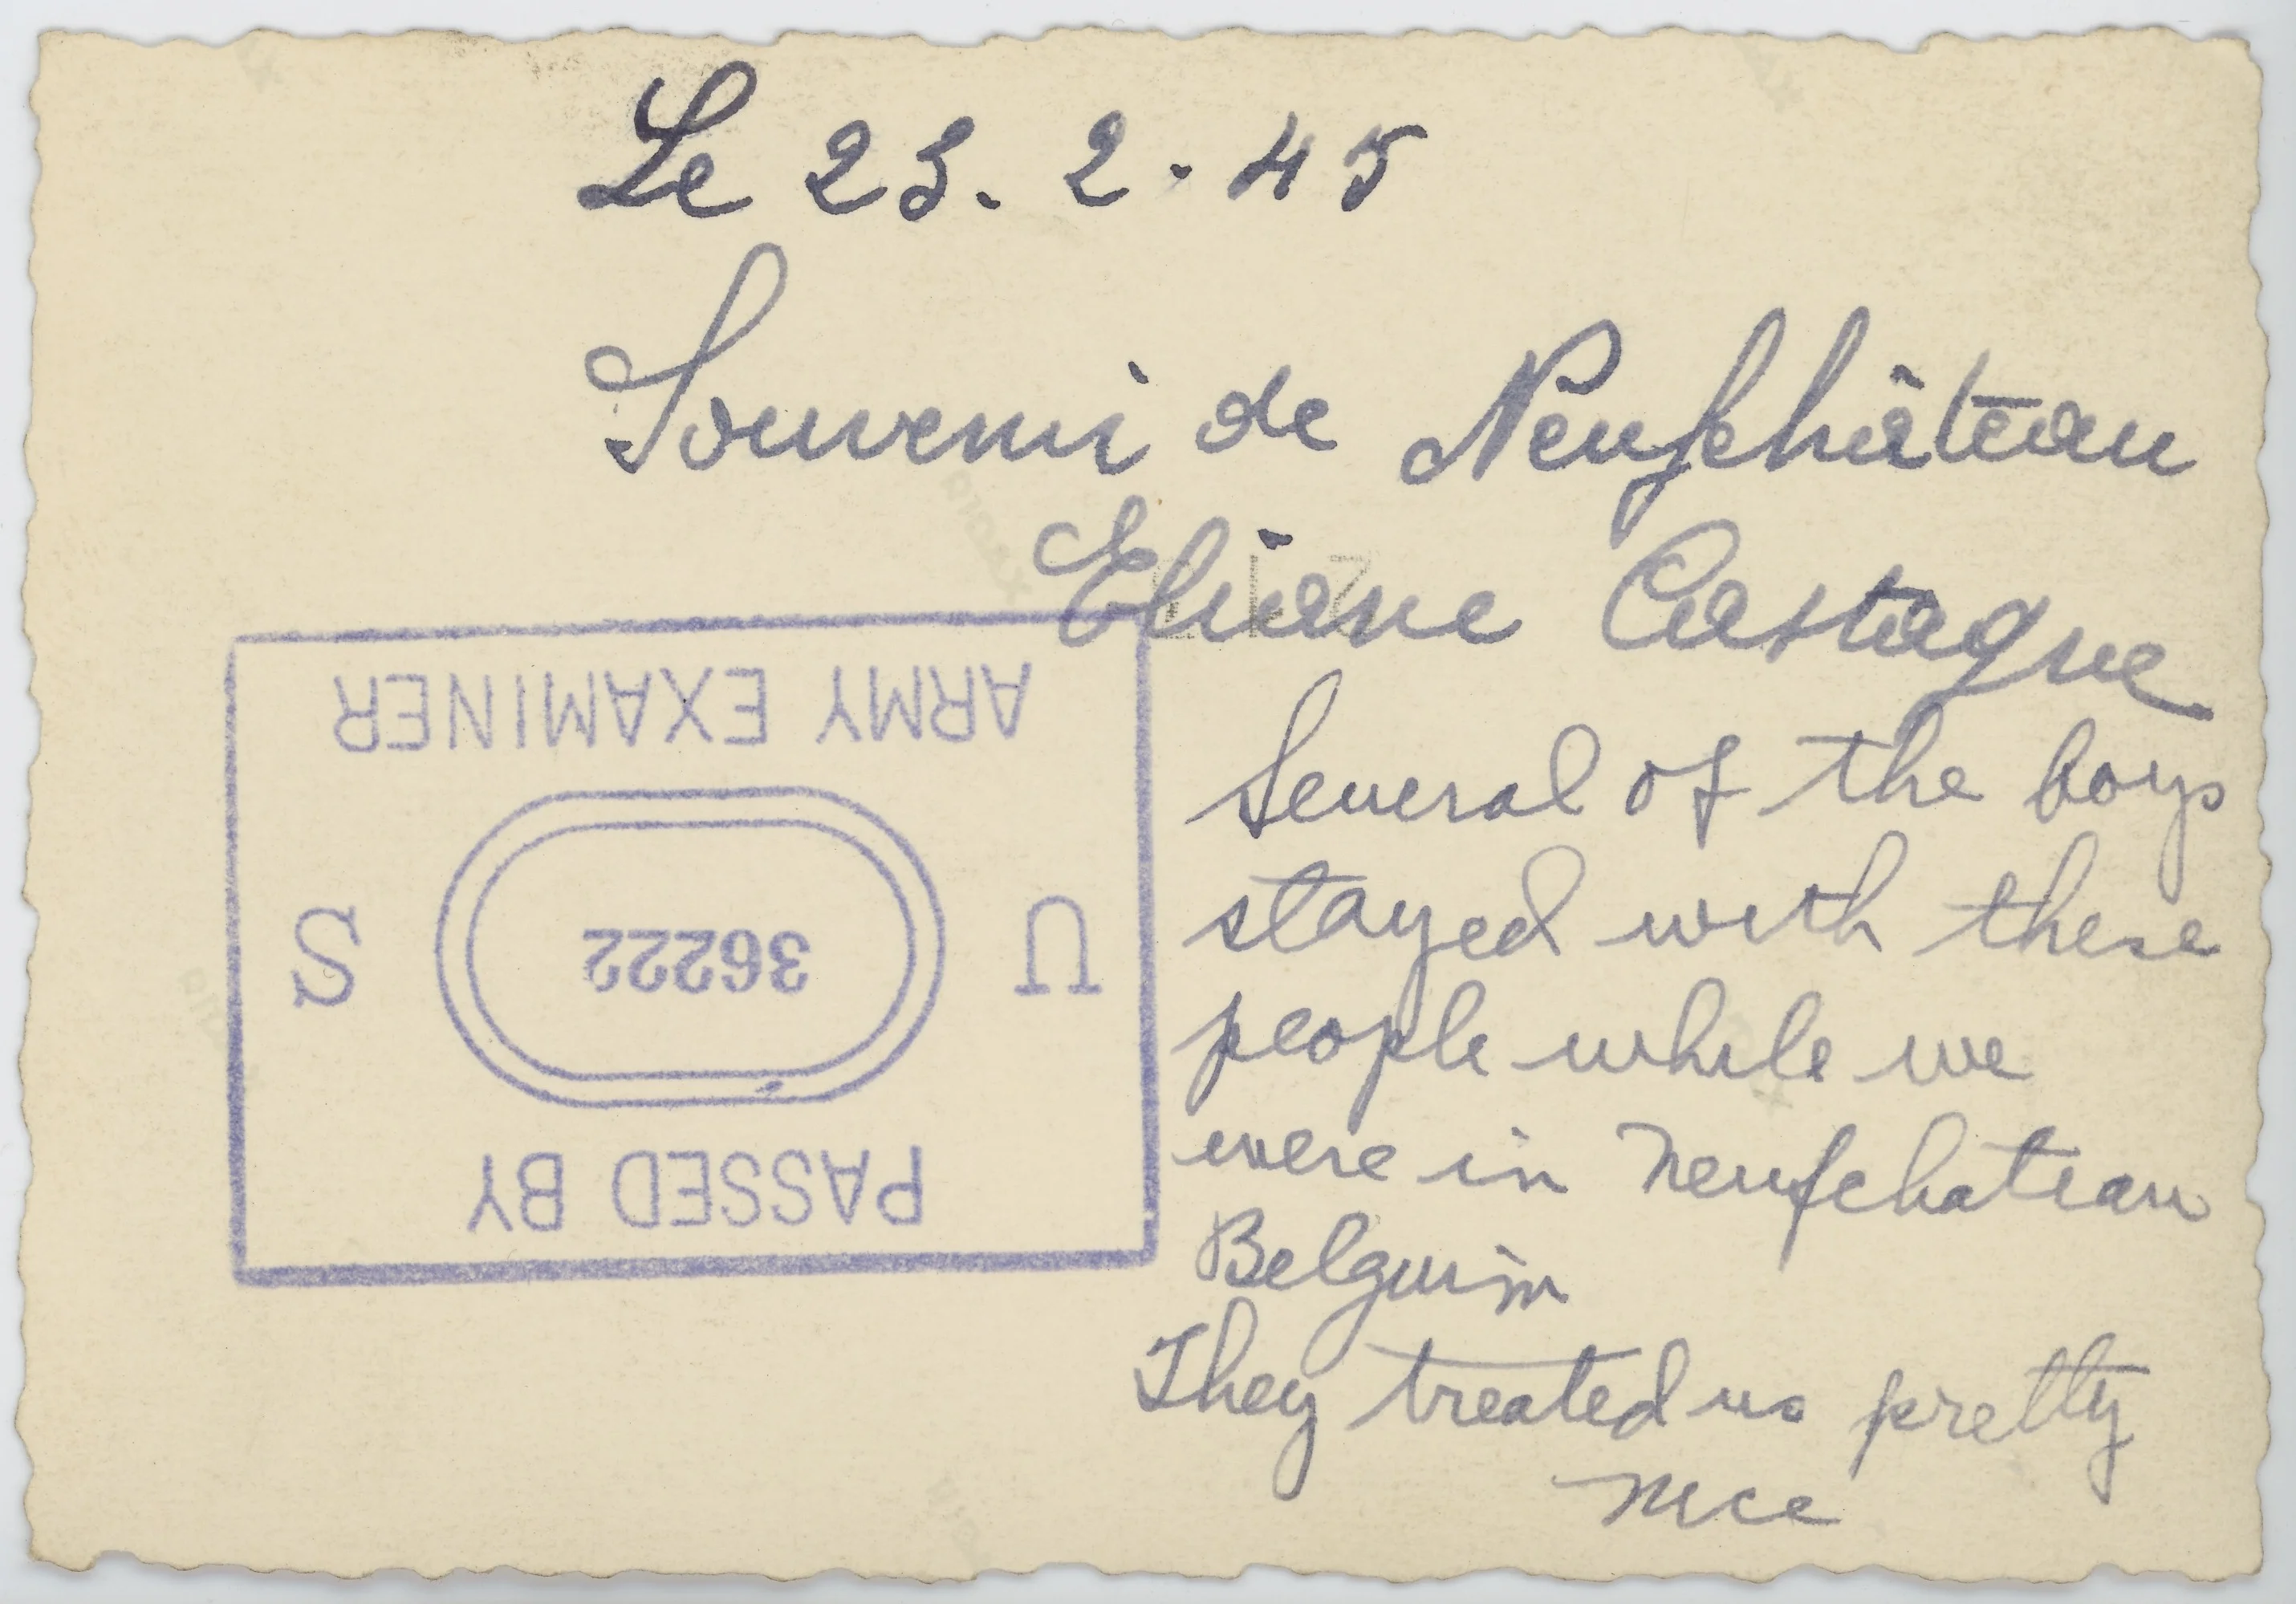 Le 23. 2. 45
Souvenir de Neufchâteau
Eliane Castagne
Several of the boys
stayed with these
people while we
were in Neufchateau
Belguim
They treated us pretty
nice
PASSED BY
U 36222 S
ARMY EXAMINER